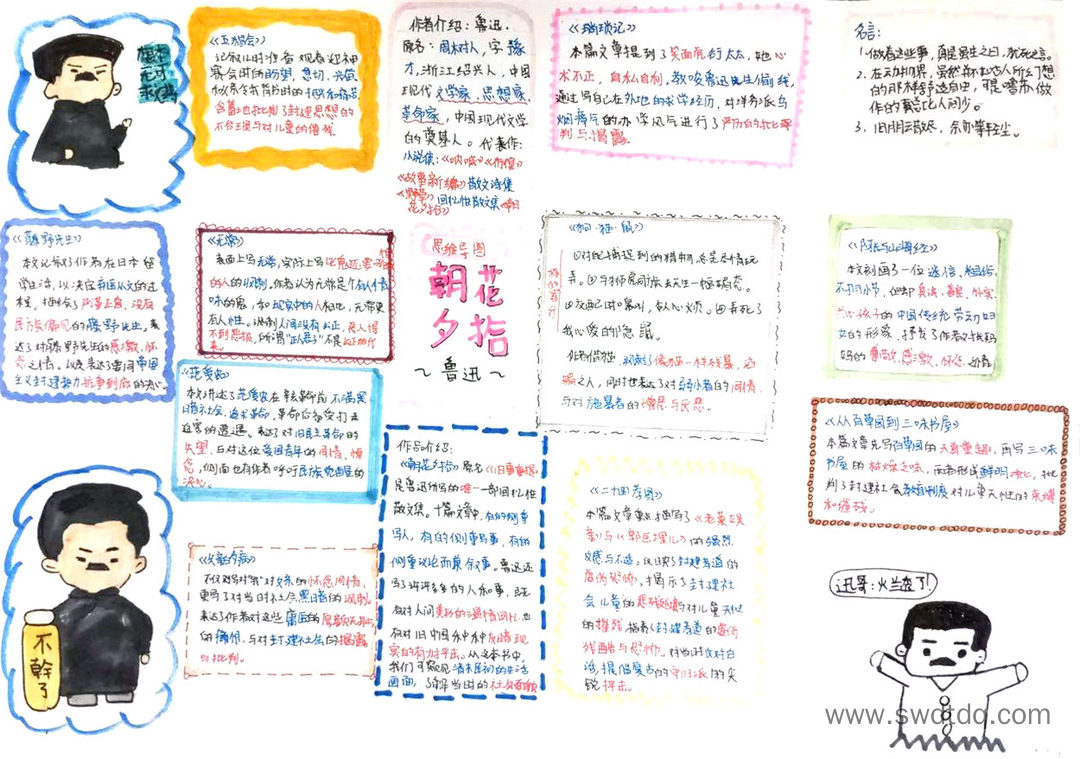 《五猖会》
记叙儿时准备观看迎神
赛会时的盼望、急切、兴奋
被父亲勒令背书时的扫兴和痛苦
含蓄地批判了封建思想的
不合理与对儿童的
作者介绍：鲁迅.
原名：周树人，字豫
才，浙江绍兴人，中国
现代文学家、思想家、
革命家，中国现代文学
的奠基人。代表作：
小说集：《呐喊》《彷徨》
《故事新编》散文诗集
《野草》回忆性散文集《朝
花夕拾》
《琐记》
本篇文章提到了 衍太太，她心
术不正，自私自利，教唆鲁迅 偷钱，
通过写自己在外地的求学经历，对洋务派乌
烟瘴气的办学风气进行了严厉的批评
判与揭露。
名言：
1. 做着这些事，真是虽生之日，犹死之年。
2. 在动物界，虽然并不如古人所幻想
的那样舒适自由，可是噜苏做
作的事总比人间少。
3. 旧朋云散尽，余亦等轻尘。
《藤野先生》
本文记叙了作者在日本留
学生活，以决定弃医从文的过
程，刻画了严厉正直，没有
民族偏见的藤野先生，表
达了对藤野先生的感激、怀
念之情。以及表达了要同帝国
主义封建势力抗争到底的决心。
《无常》
表面上写无常，实际上写
的人的讽刺，作者认为无常是个有人情
味的鬼，和现实中的人相比，无常更
有人性。讽刺人间没有公正，恶人得
不到恶报，所谓"正人君子"不是
思维导图
朝花
夕拾
～鲁迅～
《狗·猫·鼠》
①对比捕捉到的猎物，总是尽情玩
弄。②与狮虎同族，天生一幅媚态。
③在交配时嗥叫，令人心烦。④弄死了
我心爱的隐鼠。
作者借猫，讽刺了像猫一样残暴，
之人，同时也表达了对弱小者的同情，
与对施暴者的憎恶与厌恶。
《阿长与山海经》
本文刻画了一位迷信、粗俗、
不拘小节，但却真诚、善良、朴实、
关心孩子的中国传统劳动妇
女的形象，抒发了作者对长妈
妈的尊敬、感激、怀念，
《范爱农》
本文讲述了范爱农在革命前 不满黑
暗社会、追求革命，革命后却受打击
迫害的遭遇。表达了对旧民主革命的
失望，与对这位爱国青年的同情、悼
念，侧面也有作者呼吁民族觉醒的
决心。
作品介绍：
《朝花夕拾》原名《旧事重提》
是鲁迅所写的唯一一部回忆性
散文集。十篇文章中，有的侧重
写人，有的侧重写事，有的
侧重议论而兼叙事，鲁迅还
写了许许多多的人和事，既
有对人间美好的温情回忆，也
有对旧中国种种黑暗现
实的有力抨击。从这本书中，
我们可窥见清末民初的生活
画面，了解当时的社会面貌
《二十四孝图》
本篇文章重点描写了《老莱娱
亲》与《郭巨埋儿》的强烈
反感与不适，以揭示封建孝道的
虚伪、恐怖，揭示了封建社
会儿童的悲惨处境与对儿童天性
的摧残，揭露了封建孝道的虚伪
残酷与恐怖，对当时反对白
话，提倡复古的守旧派的尖
锐抨击。
《从百草园到三味书屋》
本篇文章先写百草园的天真童趣，再写三味
书屋的枯燥乏味，两者形成鲜明对比，批
判了封建社会教育制度对儿童天性的束缚
和摧残。
《父亲的病》
不仅对写对"我"对父亲的怀念同情，
更写了对当时社会黑暗的讽刺，
表达了作者对这些庸医的
的痛恨，与对封建社会的揭露
与批判。
不幹了
迅哥：火兰查了!
www.swdtdq.com